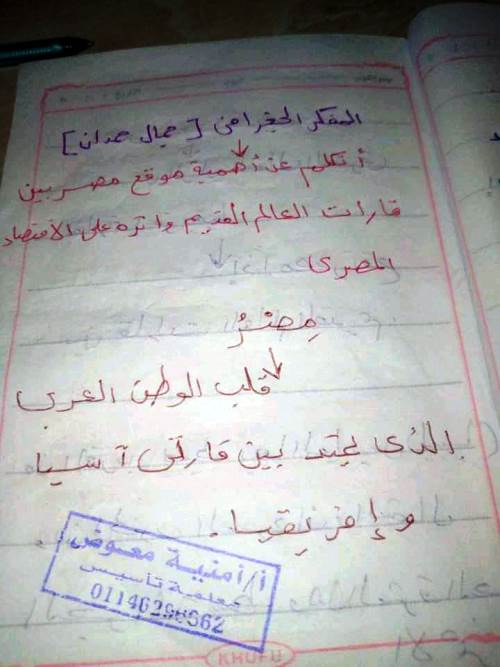 المفكر الجغرافى [جمال حمدان]
أتكلم عن أهمية موقع مصر بين
قارات العالم القديم واثره على الاقتصاد
المصرى
مِصْرُ
قلب الوطن العربى
الذى يمتد بين قارتى آسيا
وإفريقيا.
أ/أمنية معوض
معلمة تأسيس
01146290362
KHUFU